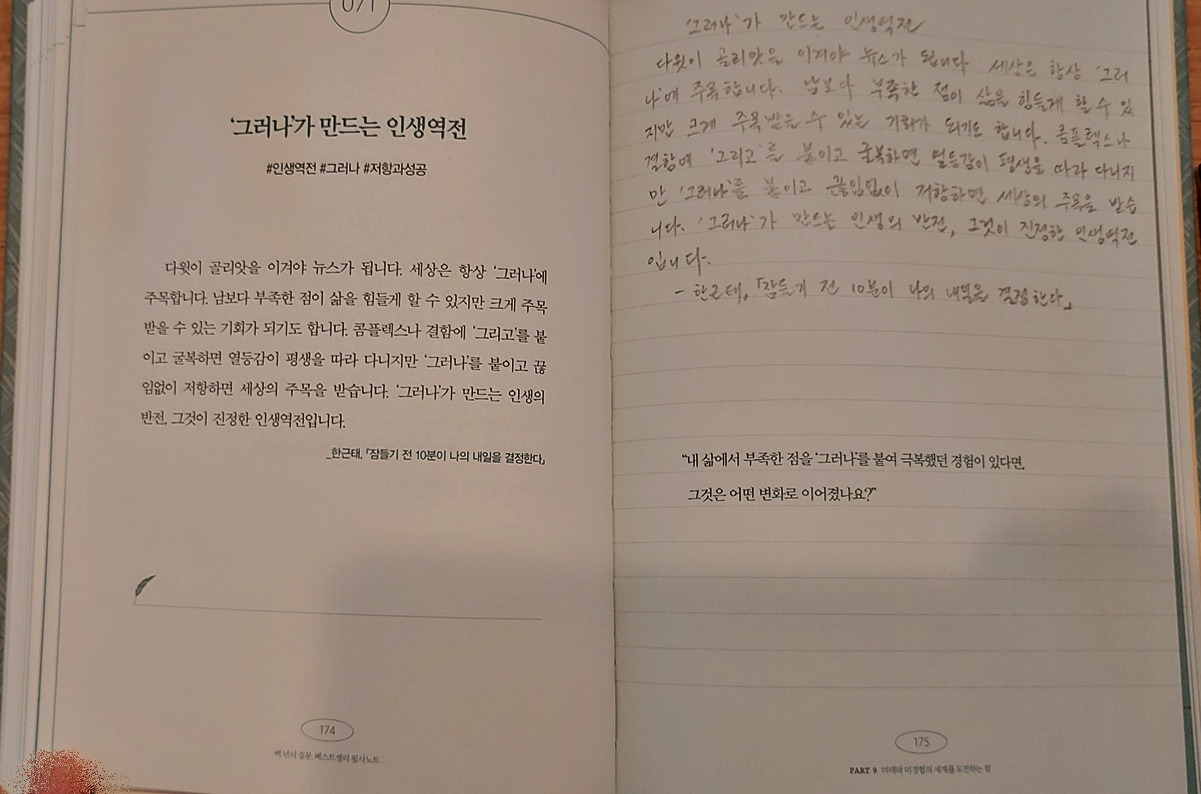 071
‘그러나’가 만드는 인생역전
#인생역전 #그러나 #저항과성공
다윗이 골리앗을 이겨야 뉴스가 됩니다. 세상은 항상 ‘그러나’에
주목합니다. 남보다 부족한 점이 삶을 힘들게 할 수 있지만 크게 주목
받을 수 있는 기회가 되기도 합니다. 콤플렉스나 결함에 ‘그리고’를 붙
이고 굴복하면 열등감이 평생을 따라 다니지만 ‘그러나’를 붙이고 끊
임없이 저항하면 세상의 주목을 받습니다. ‘그러나’가 만드는 인생의
반전, 그것이 진정한 인생역전입니다.
_한근태, 「잠들기 전 10분이 나의 내일을 결정한다」
174
백 년의 질문, 베스트셀러 필사노트
‘그러나’가 만드는 인생역전
다윗이 골리앗을 이겨야 뉴스가 됩니다. 세상은 항상 ‘그러
나’에 주목합니다. 남보다 부족한 점이 삶을 힘들게 할 수 있
지만 크게 주목받을 수 있는 기회가 되기도 합니다. 콤플렉스나
결함에 ‘그리고’를 붙이고 굴복하면 열등감이 평생을 따라 다니지
만 ‘그러나’를 붙이고 끊임없이 저항하면 세상의 주목을 받습
니다. ‘그러나’가 만드는 인생의 반전, 그것이 진정한 인생역전
입니다.
- 한근태, 「잠들기 전 10분이 나의 내일을 결정한다」
“내 삶에서 부족한 점을 ‘그러나’를 붙여 극복했던 경험이 있다면,
그것은 어떤 변화로 이어졌나요?”
175
PART 9 미래와 미경험의 세계를 도전하는 힘